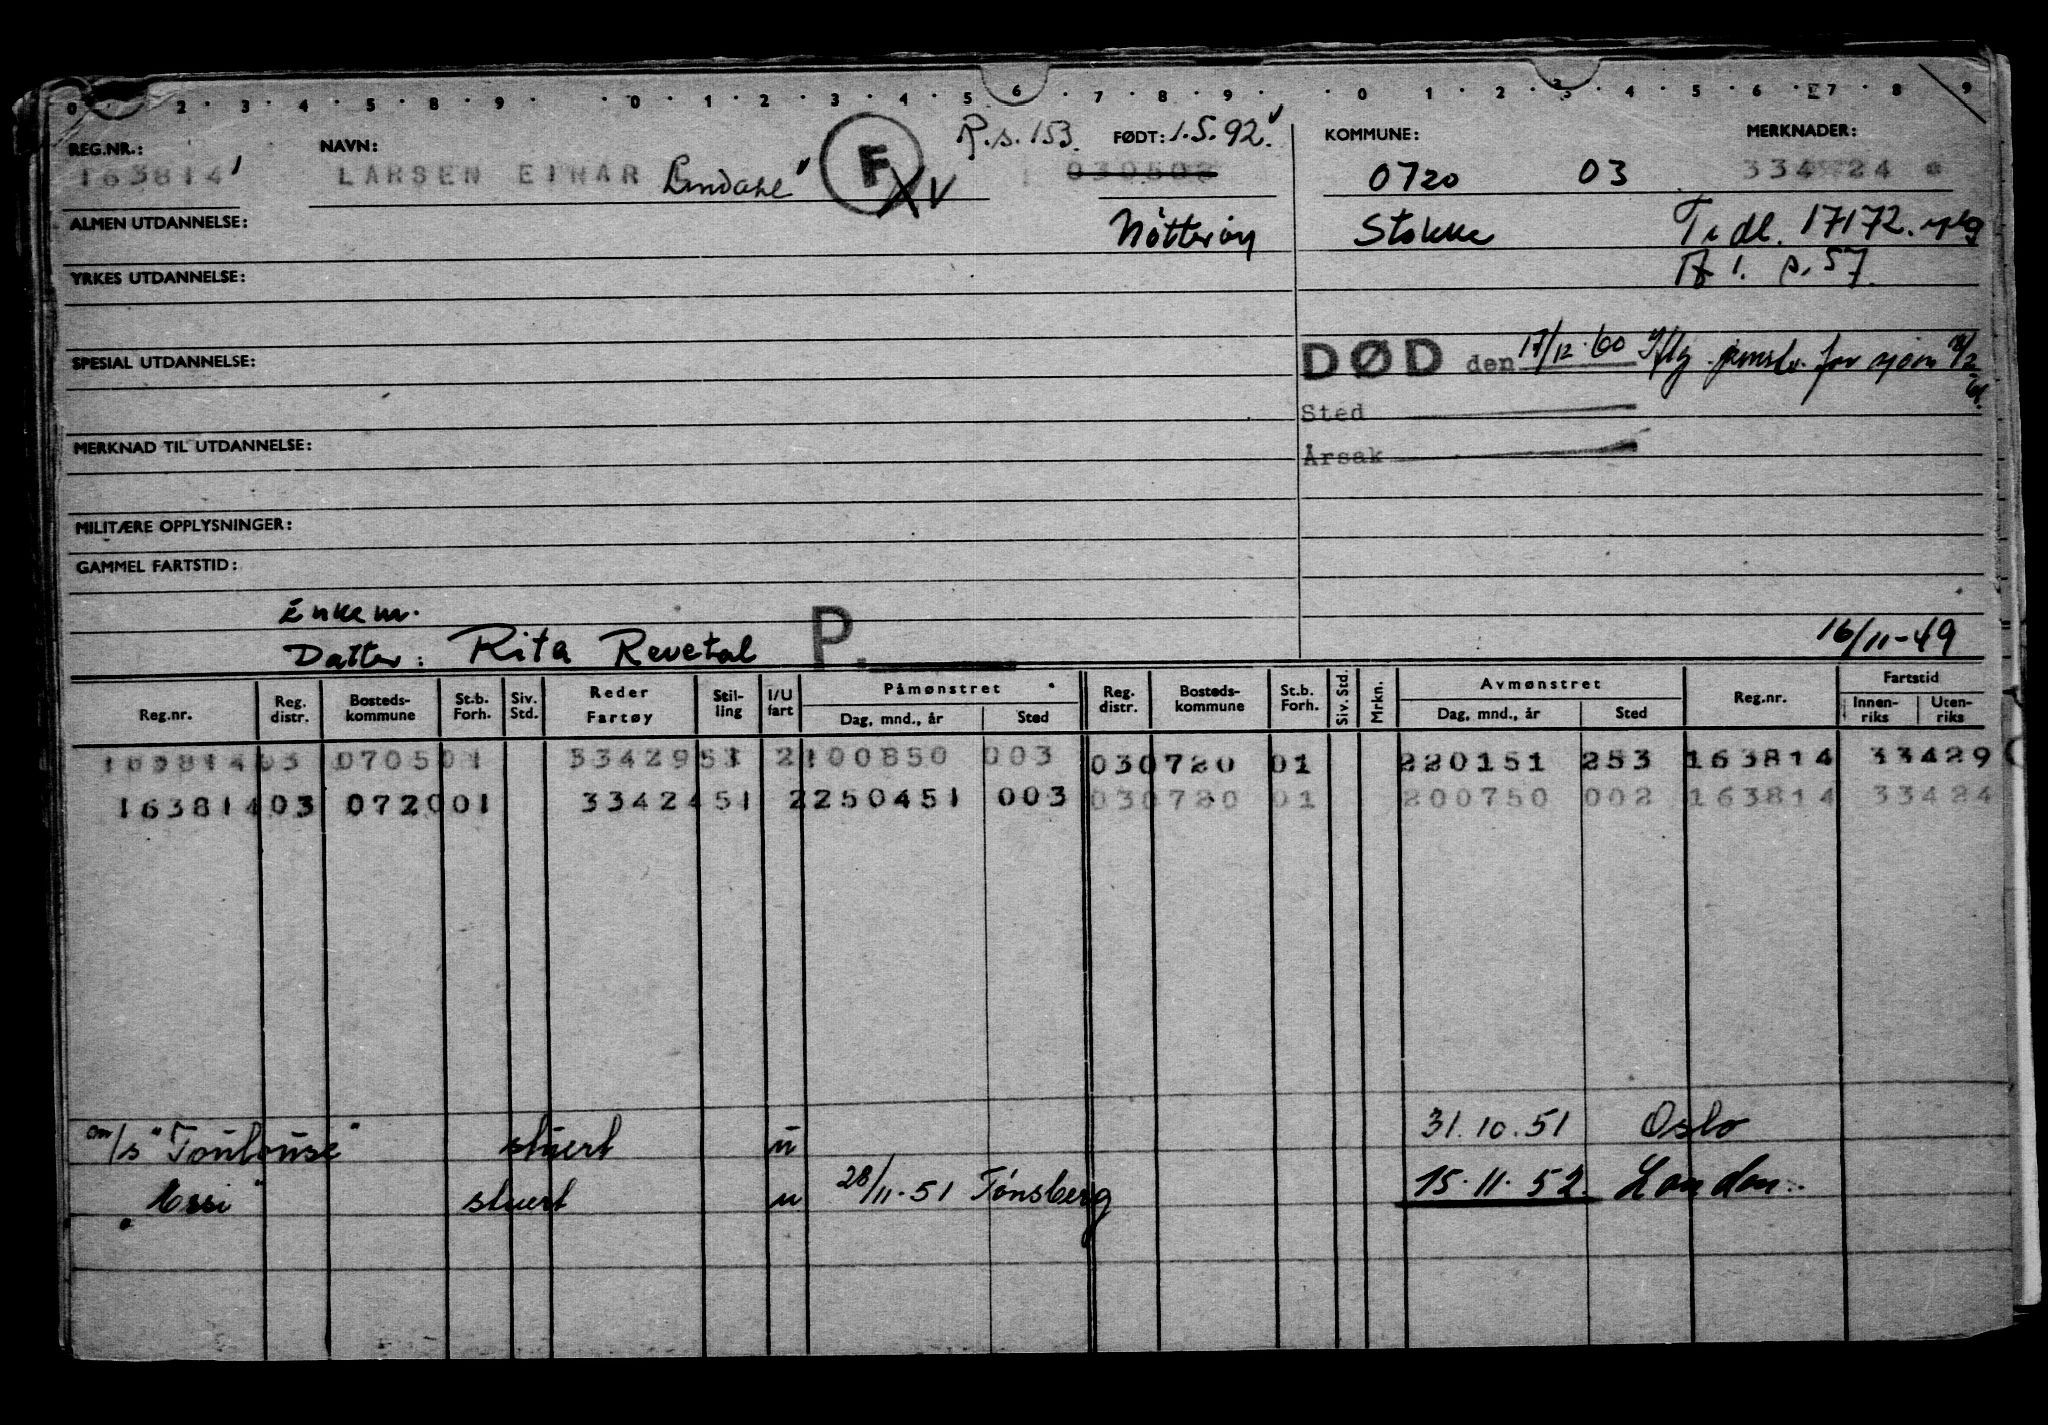 0 2 3 4 5 8 9 0 1 2 3 4 5 6 7 8 9 0 1 2 3 4 5 6 7 8 9
REG.NR.: NAVN: R.s. 153. FØDT: 1.5.92. KOMMUNE: MERKNADER:
163814 LARSEN EINAR F XV 030502 0720 03 334724
ALMEN UTDANNELSE: Nøtterøy Stokke Tidl. 17172.
YRKES UTDANNELSE: A 1. p. 57.
SPESIAL UTDANNELSE: DØD den 17/12.60 for
Sted
MERKNAD TIL UTDANNELSE: Årsak
MILITÆRE OPPLYSNINGER:
GAMMEL FARTSTID:
Enkem.
Datter: Rita Revetal P. 16/11-49
Reg.nr. Reg. distr. Bosteds-kommune St.b. Forh. Siv. Std. Reder Fartøy Stil-ling I/U fart Påmønstret Dag, mnd., år Sted Reg. distr. Bosteds-kommune St.b. Forh. Siv. Std. Mrkn. Avmønstret Dag, mnd., år Sted Reg.nr. Fartstid Innen-riks Uten-riks
163814 03 0705 01 33429 53 2 100850 003 03 0720 01 220151 253 163814 33429
163814 03 0720 01 33424 51 2 250451 003 03 0720 01 200750 002 163814 33424
m/s "Toulouse" stuert u 31.10.51 Oslo
" Essi" stuert u 28/11.51 Tønsberg 15.11.52. London.